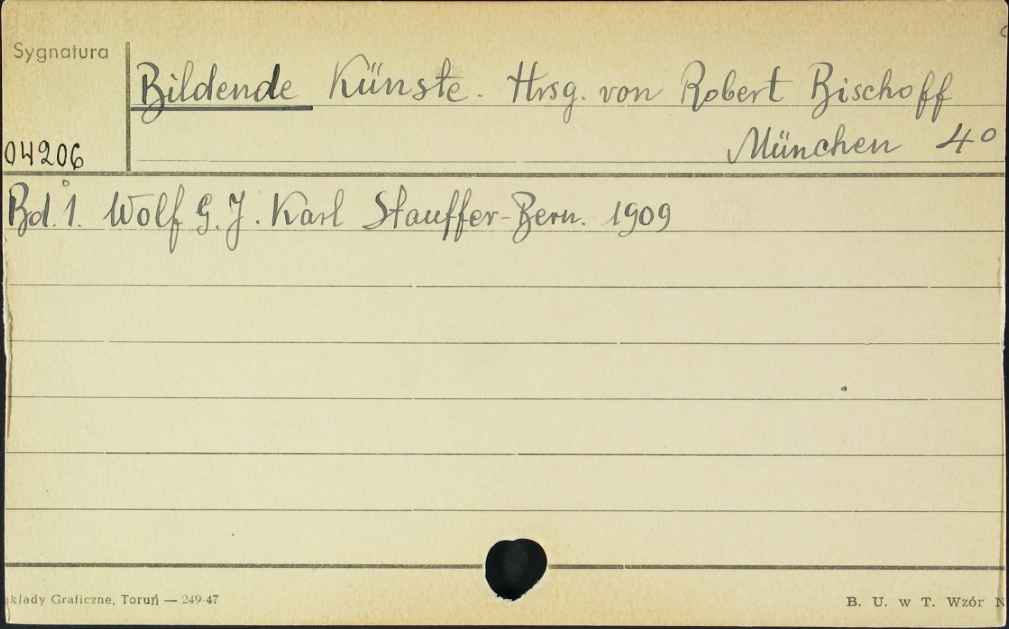 Sygnatura
Bildende Künste. Hrsg. von Robert Bischoff
München 4°
04206
Bd. 1. Wolf G. J. Karl Stauffer-Bern. 1909
kłady Graficzne, Toruń — 249-47
B. U. w T. Wzór N